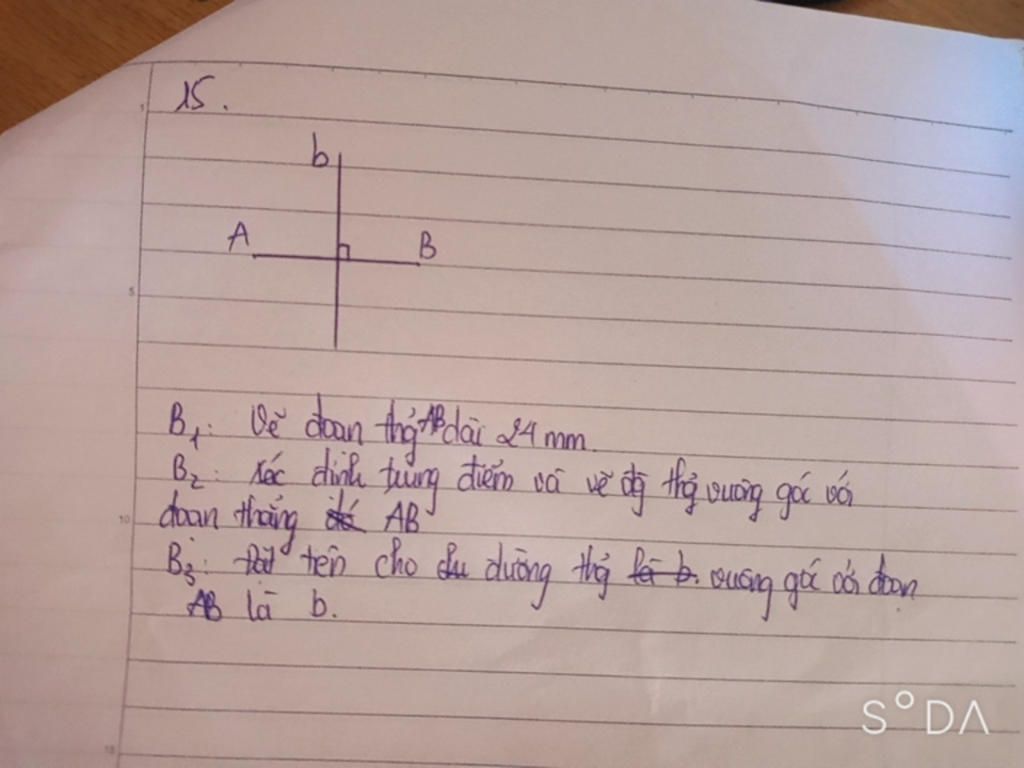 15.
b
A
B
B1: Vẽ đoạn thg AB dài 24 mm.
B2: Xác định trung điểm và vẽ đg thg vuông góc với
đoạn thẳng AB
B3: Đặt tên cho đường thg vuông góc với đoạn
AB là b.
1
5
10
15
S°DA